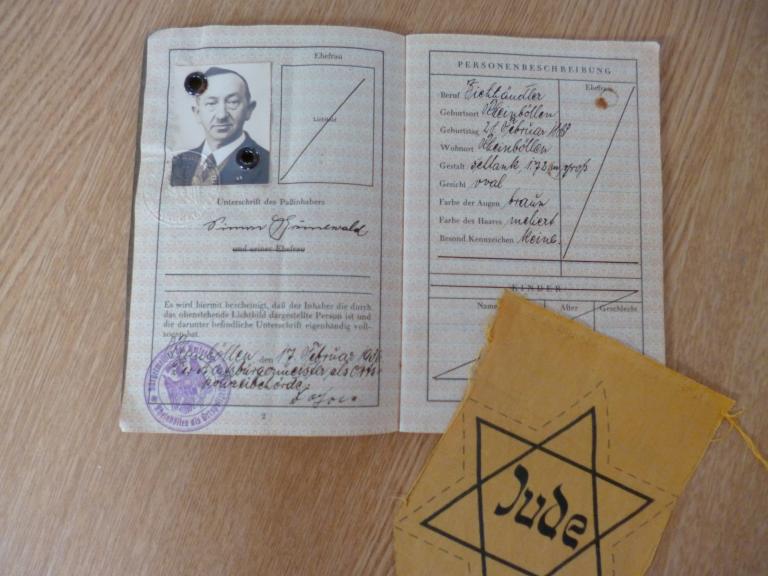 Ehefrau
Lichtbild
Unterschrift des Paßinhabers
Simon Grünewald
und seiner Ehefrau
Es wird hiermit bescheinigt, daß der Inhaber die durch
das obenstehende Lichtbild dargestellte Person ist und
die darunter befindliche Unterschrift eigenhändig voll-
zogen hat.
Rheinböllen, den 17. Februar
als Orts
polizeibehörde
2
PERSONENBESCHREIBUNG
Ehefrau
Beruf Viehhändler
Geburtsort Rheinböllen
Geburtstag Februar
Wohnort Rheinböllen
Gestalt schlank, 1.72 m groß
Gesicht oval
Farbe der Augen braun
Farbe des Haares meliert
Besond. Kennzeichen Keine.
KINDER
Name Alter Geschlecht
Jude